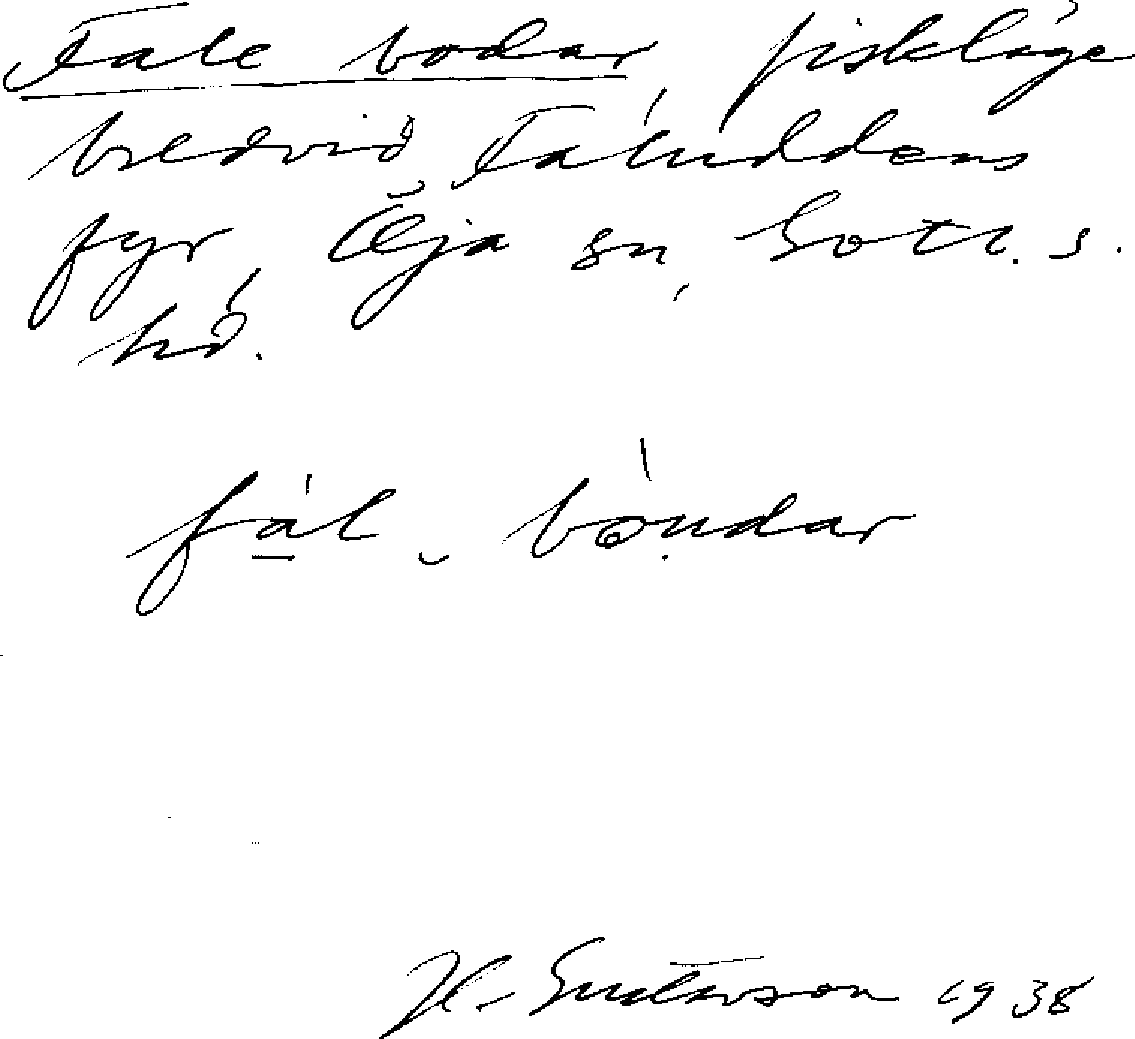 Fale bodar, fiskläge
bredvid Faluddens
fyr, Öja sn, Gotl. s.
hd.
fal bọudar
H. Gustavson 1938